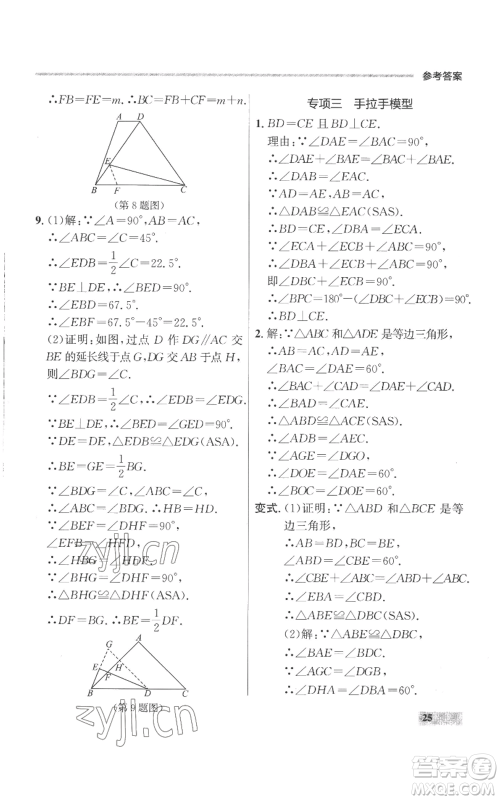 参考答案
∴FB=FE=m.∴BF+CF=m+n.
A D
E
B F C
(第8题图)
9.(1)解:∵∠A=90°,AB=AC,
∴∠ABC=∠C=45°.
∴∠EDB=1/2∠C=22.5°.
∵BE⊥DE,∴∠BED=90°.
∴∠EBD=67.5°.
∴∠EBF=67.5°-45°=22.5°.
(2)证明:如图,过点D作DG∥AC交
BE的延长线于点G,DG交AB于点H,
则∠BDG=∠C.
∵∠EDB=1/2∠C,
∴∠EDB=∠EDG.
∵BE⊥DE,∴∠BED=∠GED=90°.
∵DE=DE,∴△EDB≌△EDG(ASA).
∴BE=GE=1/2BG.
∵∠BDG=∠C,∠ABC=∠C,
∴∠BDG=∠ABC.∴BH=DH.
∵∠BEF=∠DHF=90°,
∠EFB=∠HFD,
∴∠EBF=∠HDF.
∵∠BHG=∠DHF=90°,
∴△BHG≌△DHF(ASA).
∴DF=BG.∴BE=1/2DF.
G A
E H
F
B D C
(第9题图)
专项三 手拉手模型
1.BD=CE且BD⊥CE.
理由:∵∠DAE=∠BAC=90°,
∴∠DAE+∠BAE=∠BAC+∠BAE.
∴∠DAB=∠EAC.
∵AD=AE,AB=AC,
∴△DAB≌△EAC(SAS).
∴BD=CE,∠DBA=∠ECA.
∵∠ECA+∠ECB+∠ABC=90°,
∴∠DBA+∠ECB+∠ABC=90°,
即∠DBC+∠ECB=90°.
∴∠BPC=180°-(∠DBC+∠ECB)=90°.
∴BD⊥CE.
2.解:∵△ABC和△ADE是等边三角形,
∴AB=AC,AD=AE,
∠BAC=∠DAE=60°.
∴∠BAD=∠CAE.
∴△BAD≌△CAE(SAS).
∴∠ADB=∠AEC.
∵∠AGE=∠DGO,
∴∠DOE=∠DAE=60°.
∴∠BOC=∠DOE=60°.
变式.(1)证明:∵△ABD和△BCE是等
边三角形,
∴AB=DB,BE=BC,
∠ABD=∠CBE=60°.
∴∠CBE+∠ABC=∠ABD+∠ABC.
∴∠EBA=∠CBD.
∴△ABE≌△DBC(SAS).
(2)解:∵△ABE≌△DBC,
∴∠BAE=∠BDC.
∵∠AGH=∠BGD,
∴∠DHA=∠DBA=60°.
zyjl.cn
zyjl.cn
25